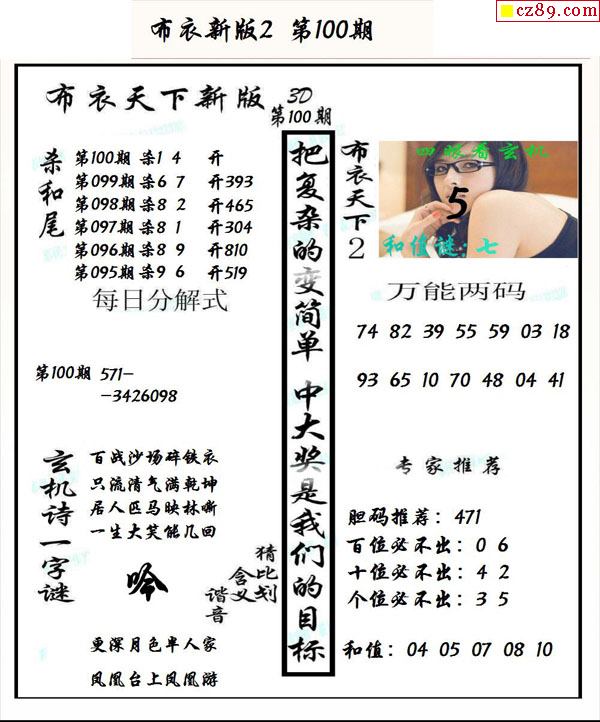 cz89.com
布衣新版2 第100期
布衣天下新版 3D
第100期
杀和尾
第100期 杀1 4 开
第099期 杀6 7 开393
第098期 杀8 2 开465
第097期 杀8 1 开304
第096期 杀8 9 开810
第095期 杀9 6 开519
每日分解式
第100期 571-
-3426098
玄机诗一字谜
百战沙场碎铁衣
只流清气满乾坤
居人匹马映林嘶
一生大笑能几回
吟
猜比划
含义
谐音
更深月色半人家
凤凰台上凤凰游
把复杂的变简单 中大奖是我们的目标
布衣天下2
四眼看玄机
5
和值谜:七
万能两码
74 82 39 55 59 03 18
93 65 10 70 48 04 41
专家推荐
胆码推荐：471
百位必不出：0 6
十位必不出：4 2
个位必不出：3 5
和值：04 05 07 08 10